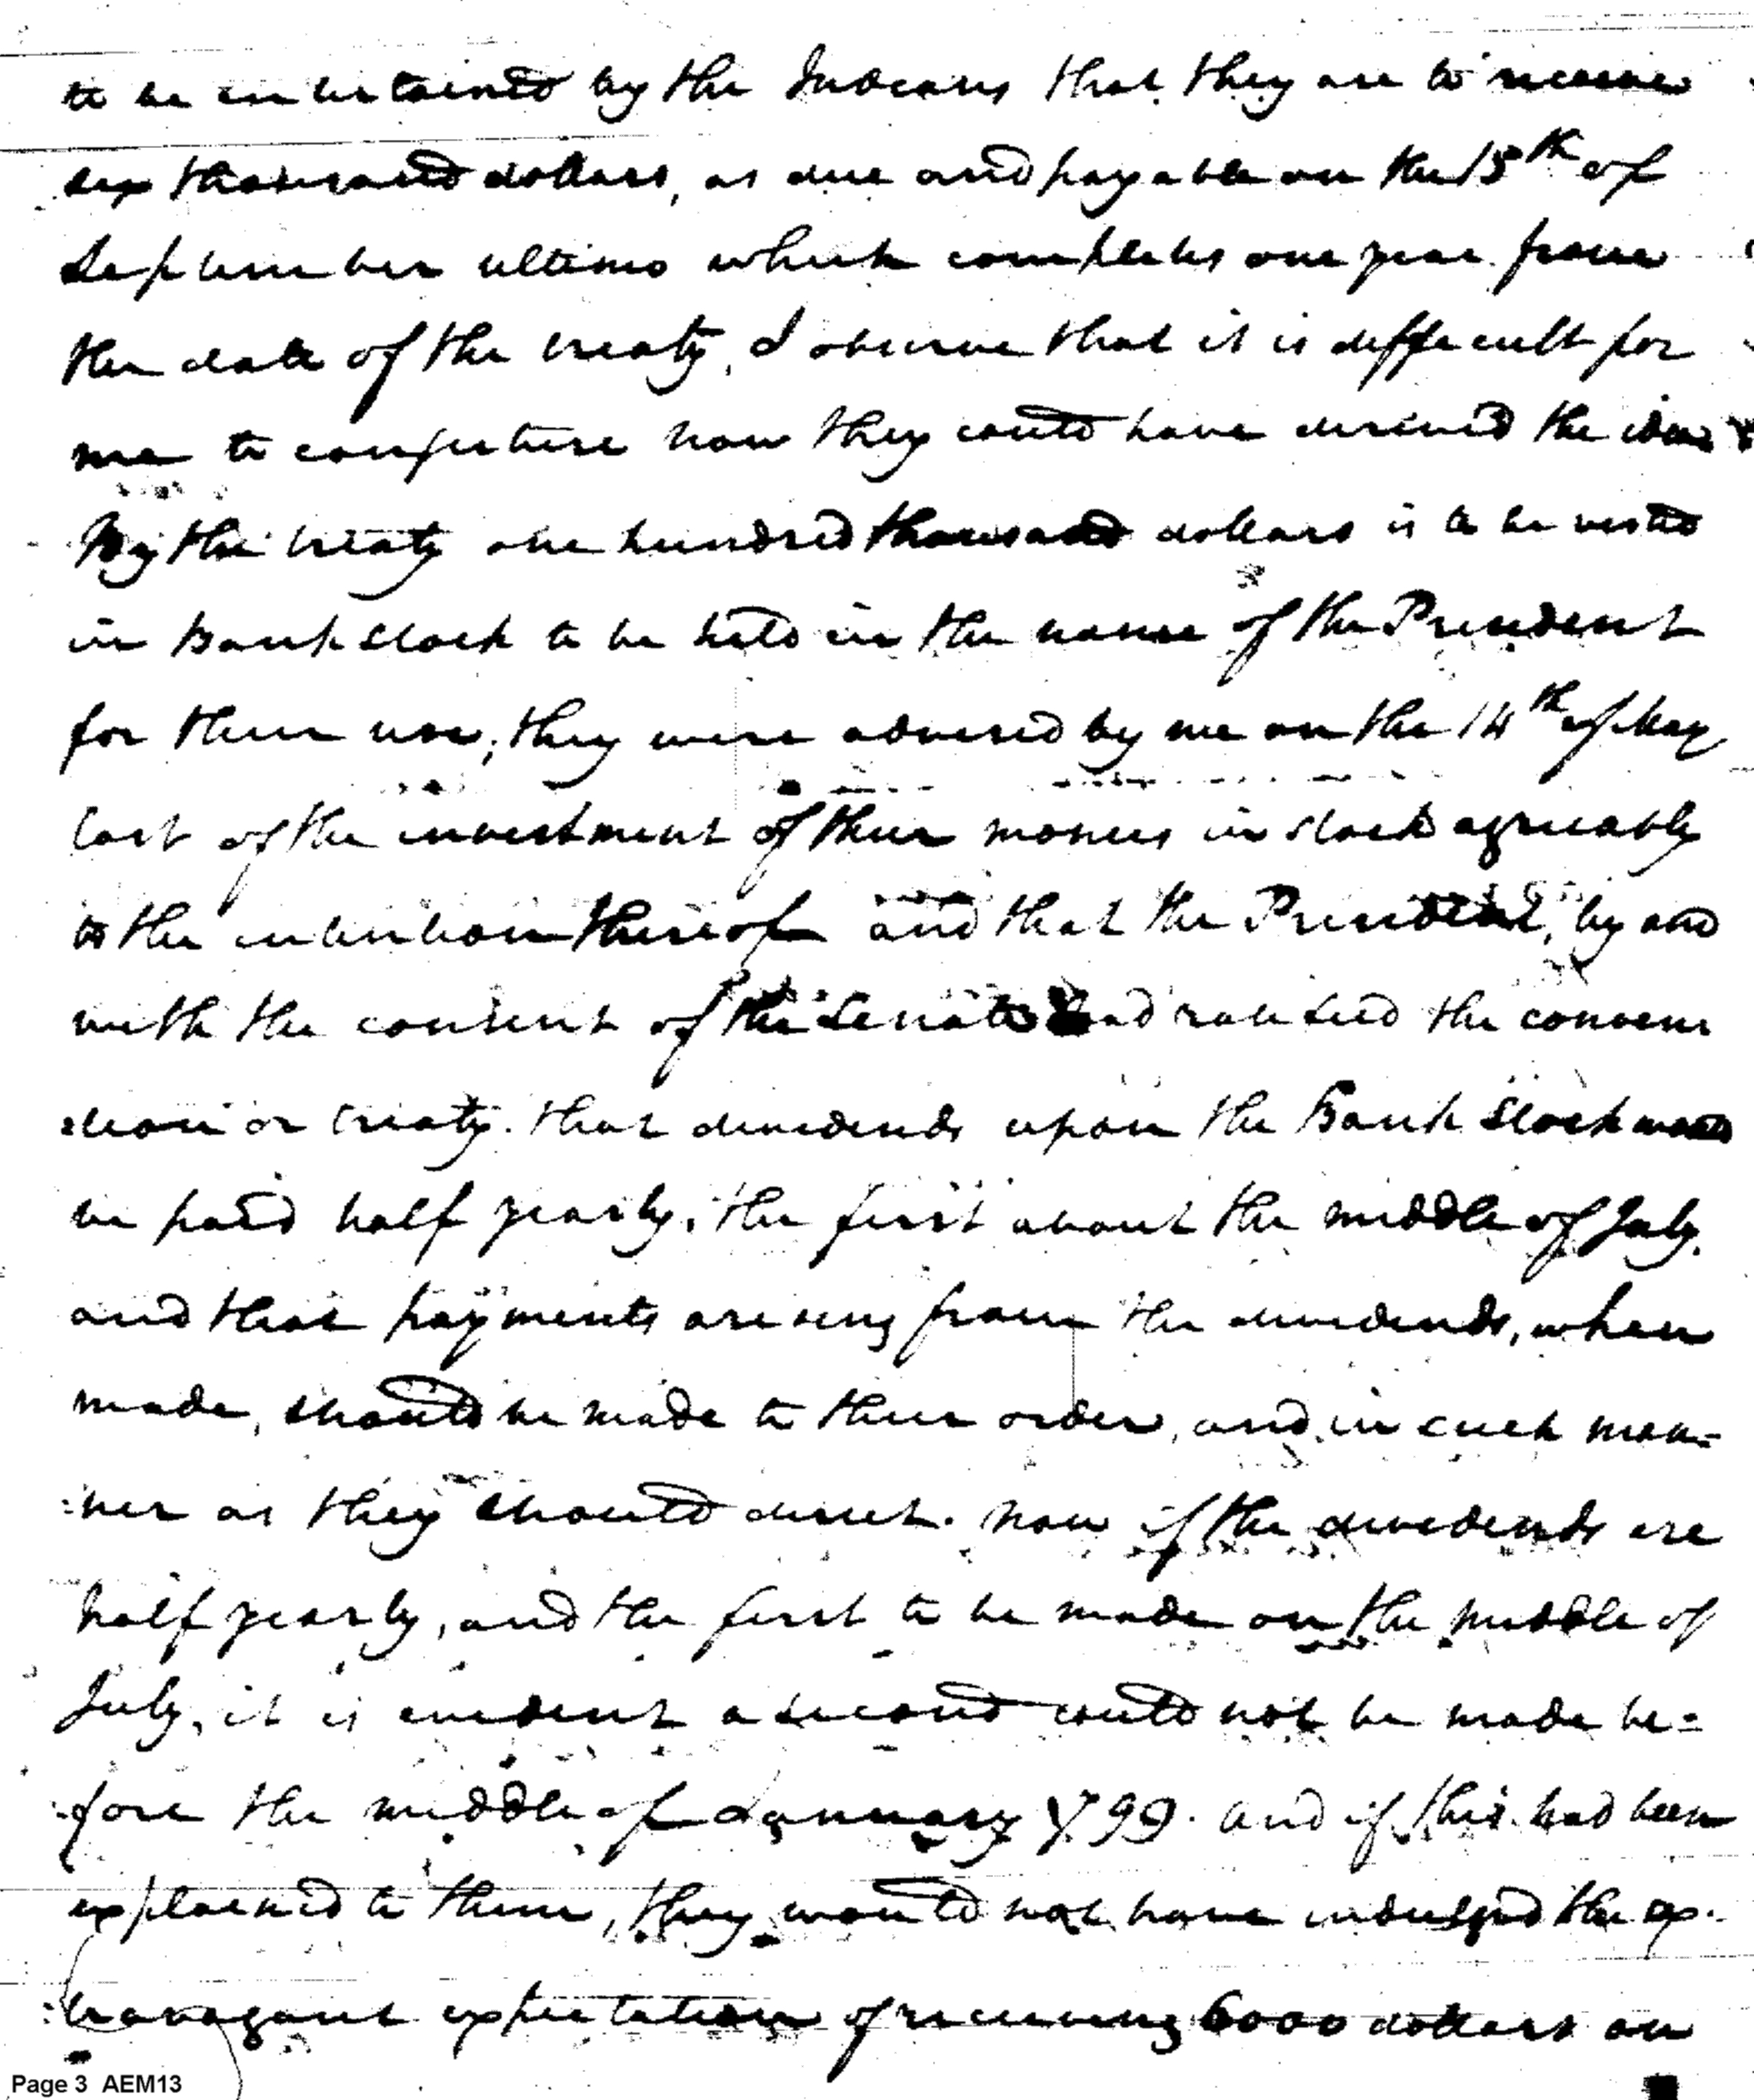 to be entertained by the Indians that they are to receive
six thousand dollars, as due and payable on the 15th of
September ultimo which completes one year from
the date of the treaty, I observe that it is difficult for
me to conjecture how they could have derived the idea
By the treaty one hundred thousand dollars is to be vested
in Bank stock to be held in the name of the President
for their use, they were advised by me on the 14th of May
last of the investment of their monies in stock agreeably
to the intention thereof and that the President, by and
with the consent of the Senate had ratified the conven
:tion or treaty. that dividends upon the Bank Stock would
be paid half yearly, the first about the middle of July.
and that payments arising from the dividends, when
made, should be made to their order, and in such man=
:ner as they should direct. now if the dividends are
half yearly, and the first to be made on the middle of
July, it is evident a second could not be made be=
:fore the middle of January 1799. and if this had been
explained to them, they would not have indulged the ex.
:travagant expectation of receiving 6000 dollars on
Page 3 AEM13